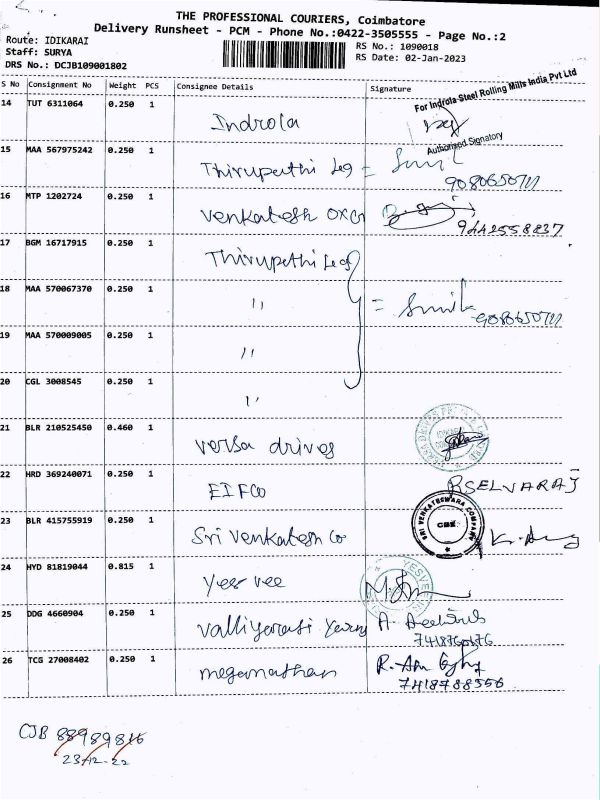 THE PROFESSIONAL COURIERS, Coimbatore
Delivery Runsheet - PCM - Phone No.:0422-3505555 - Page No.:2
Route: IDIKARAI
Staff: SURYA
DRS No.: DCJB109001802
RS No.: 1090018
RS Date: 02-Jan-2023
S No Consignment No Weight PCS Consignee Details Signature
For Indrola Steel Rolling Mills India Pvt Ltd
14 TUT 6311064 0.250 1 Indrola
Authorised Signatory
15 MAA 567975242 0.250 1 Thirupathi Leg = Sunil
16 MTP 1202724 0.250 1 Venkatesh
9442558837
17 BGM 16717915 0.250 1 Thirupathi Leg
18 MAA 570067370 0.250 1 " = Sunil
19 MAA 570009005 0.250 1 "
20 CGL 3008545 0.250 1 "
21 BLR 210525450 0.460 1 versa drives
22 HRD 369240071 0.250 1 EIFCO RSELVARAJ
23 BLR 415755919 0.250 1 Sri Venkatesh Co
SRI VENKATESWARA COMPANY
CBE
24 HYD 81819044 0.815 1 Yes vee
25 DDG 4660904 0.250 1
26 TCG 27008402 0.250 1 megamathan
7418788556
CJB
23-12-22